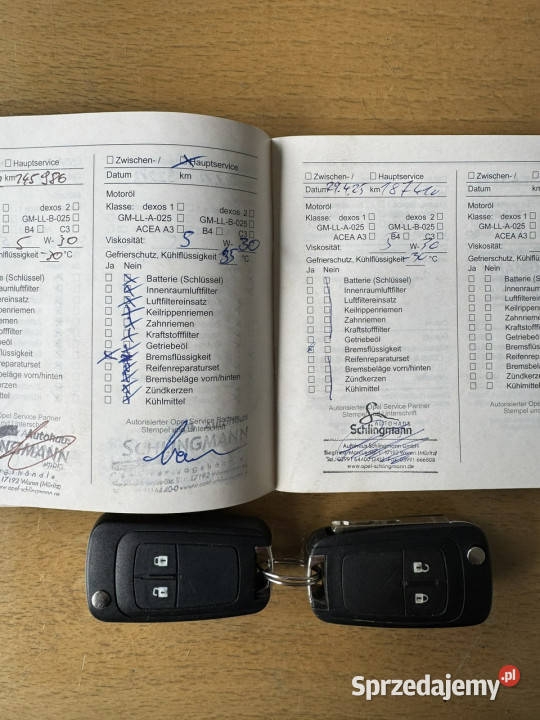 ☐ Hauptservice
km 145986
dexos 2 ☐
GM-LL-B-025 ☐
B4 ☐ C3 ☐
5 W-30
lüssigkeit -30 °C
(Schlüssel)
umluftfilter
ereinsatz
enriemen
emen
offfilter
öl
lüssigkeit
raturset
läge vorn/hinten
rzen
nittel
Opel Service Partner
Unterschrift
Autohaus
17192 Waren (Müritz)
www.opel-schlingmann.de
☐ Zwischen- / ☒ Hauptservice
Datum km
Motoröl
Klasse: dexos 1 ☐ dexos 2 ☐
GM-LL-A-025 ☐ GM-LL-B-025 ☐
ACEA A3 ☐ B4 ☐ C3 ☐
Viskosität: 5 W- 30
Gefrierschutz, Kühlflüssigkeit 35 °C
Ja Nein
Batterie (Schlüssel)
Innenraumluftfilter
Luftfiltereinsatz
Keilrippenriemen
Zahnriemen
Kraftstofffilter
Getriebeöl
Bremsflüssigkeit
Reifenreparaturset
Bremsbeläge vorn/hinten
Zündkerzen
Kühlmittel
Autorisierter Opel Service Partner
Stempel und Unterschrift
SCHLINGMANN
17192 Waren (Müritz)
☐ Zwischen- / ☐ Hauptservice
Datum 29.4.25 km 187410
Motoröl
Klasse: dexos 1 ☐ dexos 2 ☐
GM-LL-A-025 ☐ GM-LL-B-025 ☐
ACEA A3 ☐ B4 ☐ C3 ☐
Viskosität: 5 W- 30
Gefrierschutz, Kühlflüssigkeit 30 °C
Ja Nein
Batterie (Schlüssel)
Innenraumluftfilter
Luftfiltereinsatz
Keilrippenriemen
Zahnriemen
Kraftstofffilter
Getriebeöl
Bremsflüssigkeit
Reifenreparaturset
Bremsbeläge vorn/hinten
Zündkerzen
Kühlmittel
Autorisierter Opel Service Partner
Stempel und Unterschrift
AUTOHAUS
Schlingmann
Autohaus Schlingmann GmbH
17192 Waren (Müritz)
www.opel-schlingmann.de
☐ Zwischen- /
Datum
Motoröl
Klasse: dexos
GM-LL-A-025
ACEA A3
Viskosität:
Gefrierschutz, Kühlfl
Ja Nein
Batterie
Innenrau
Luftfilter
Keilrippe
Zahnrie
Kraftsto
Getriebe
Bremsfl
Reifenre
Bremsbe
Zündker
Kühlmit
Autorisierter
Stempel
Sprzedajemy.pl